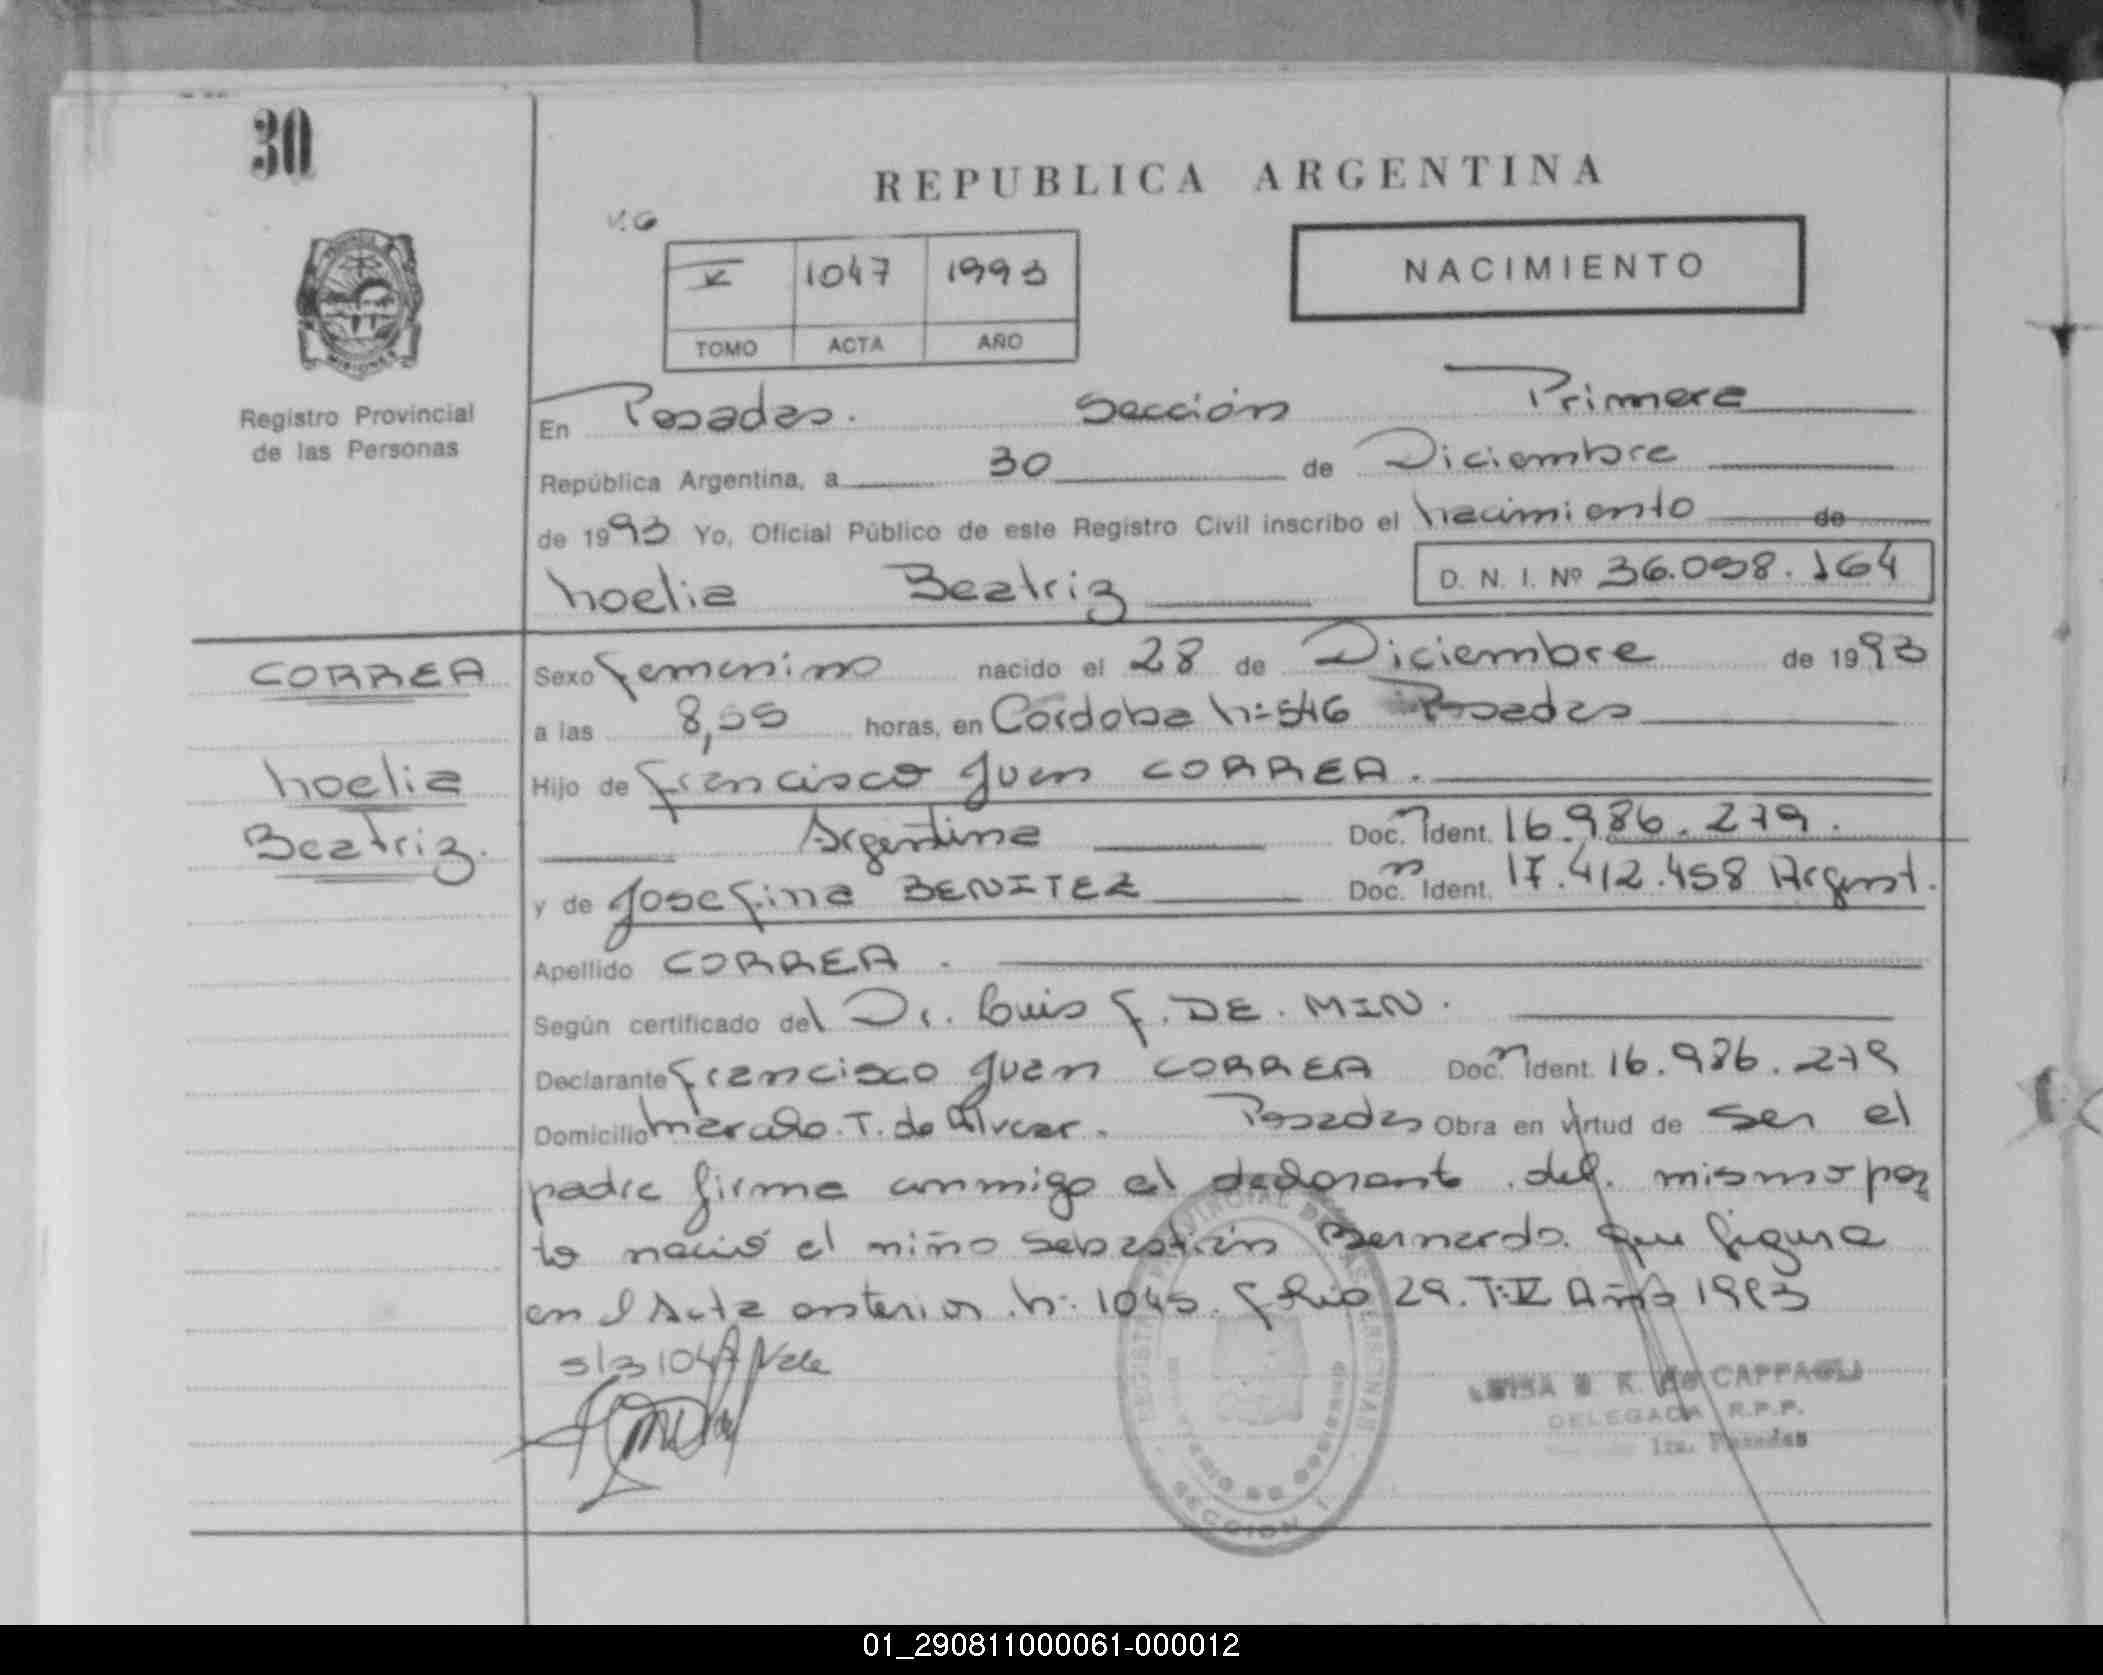 30
REPUBLICA ARGENTINA
V.G
V 1047 1993
TOMO ACTA AÑO
NACIMIENTO
MISIONES
Registro Provincial
de las Personas
En Posadas. Sección Primera
República Argentina, a 30 de Diciembre
de 1993 Yo, Oficial Público de este Registro Civil inscribo el nacimiento de
Noelia Beatriz D. N. I. Nº 36.098.164
CORREA
Noelia
Beatriz.
Sexo femenino nacido el 28 de Diciembre de 1993
a las 8,55 horas, en Córdoba Nº 546 Posadas
Hijo de Francisco Juan CORREA.
Argentina Doc. N Ident. 16.986.279.
y de Josefina BENITEZ Doc. N Ident. 17.412.458 Argent.
Apellido CORREA.
Según certificado del Dr. Luis F. DE. MIN.
Declarante Francisco Juan CORREA Doc. N Ident. 16.986.279
Domicilio Marcelo. T. de Alvear. Posadas Obra en virtud de ser el
padre firma conmigo el declarante. del. mismo par
to nació el niño Sebastián Bernardo. que figura
en el Acta anterior. Nº 1045. folio 29. T:V Año 1993
S/3 1047 Vale
REGISTRO PROVINCIAL DE LAS PERSONAS
MINISTERIO DE GOBIERNO
SECCION 1
LUISA K. de CAPPAGLI
DELEGADA R.P.P.
1ra. Posadas
01_290811000061-000012